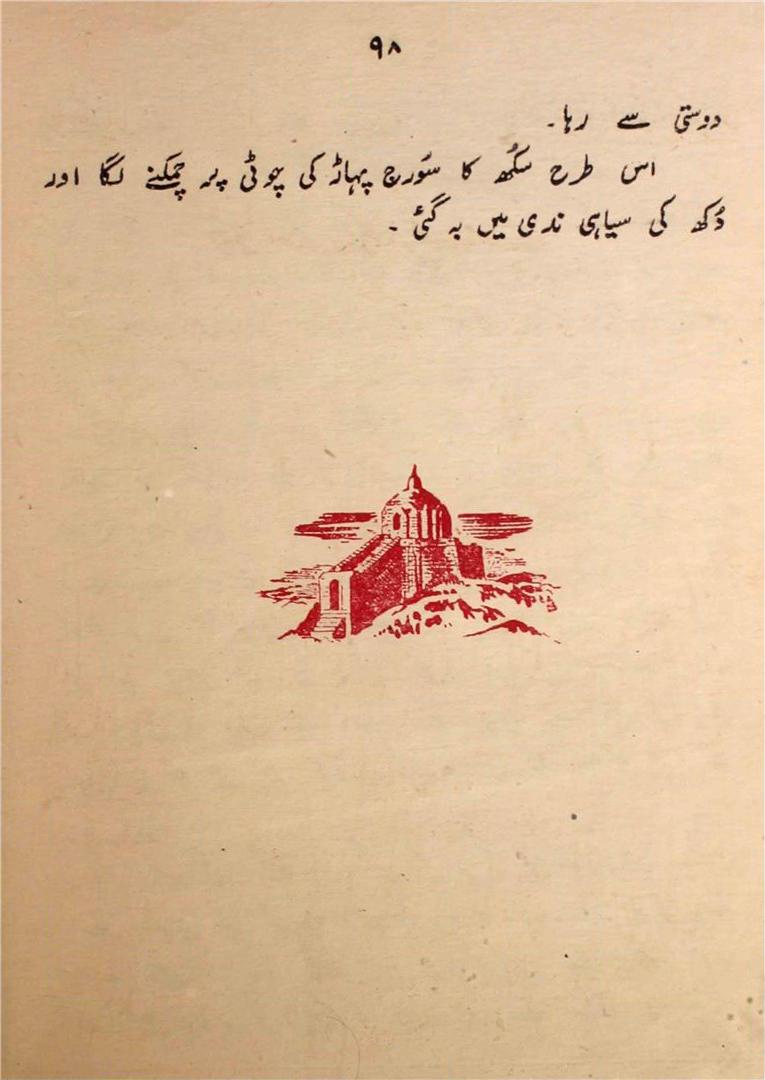 ۹۸
دوستی سے رہا۔
اس طرح سُکھ کا سُورج پہاڑ کی چوٹی پر چمکنے لگا اور
دُکھ کی سیاہی ندی میں بہ گئی۔